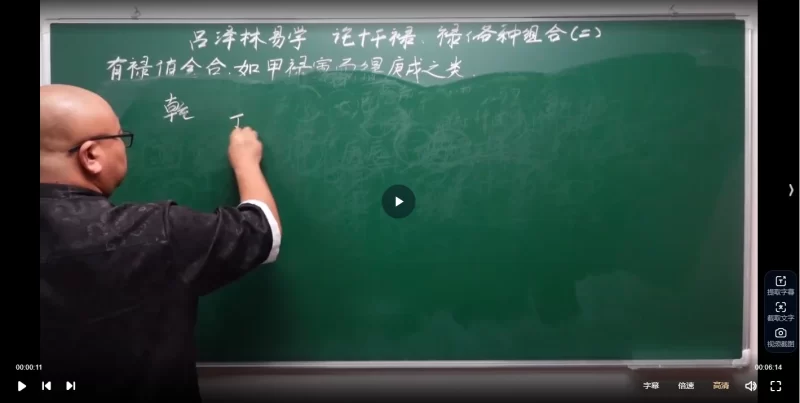 吕泽林易学 论十干禄、禄的各种组合(二)
有禄值会合,如甲禄寅而得庚戌之类.
乾 丁
提取字幕
截取文字
视频截图
00:00:11
00:06:14
字幕 倍速 高清